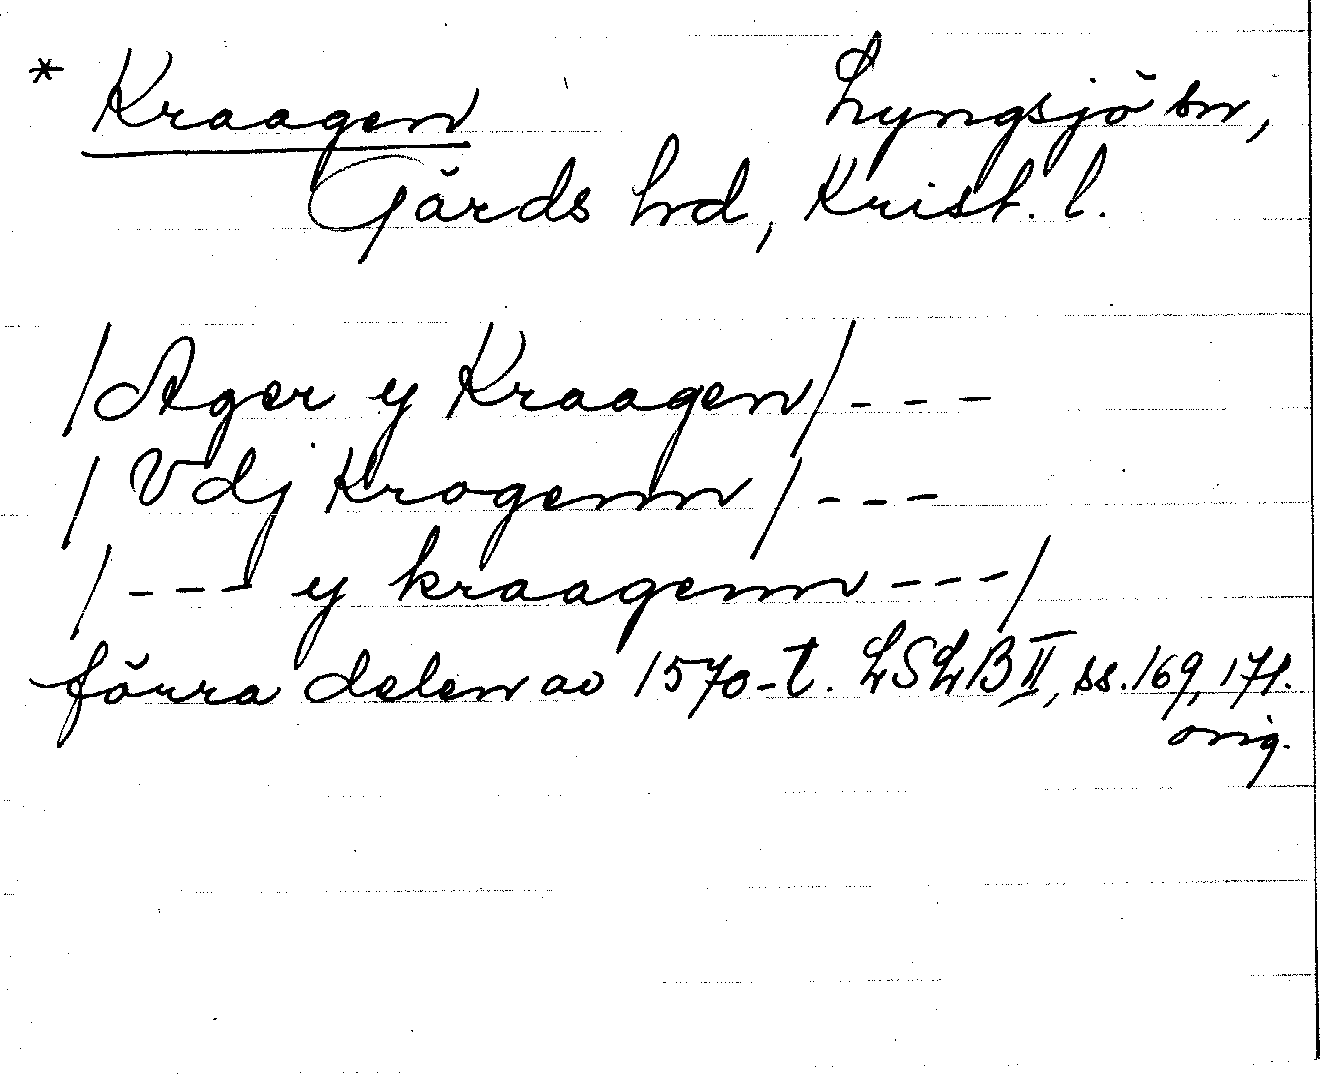 * Kraagen Lyngsjö sn,
Gärds hd, Krist. l.
/Ager y Kraagen/ - - -
/Vdj Krogenn/ - - -
/- - - y kraagenn - - -/
förra delen av 1570-t. LSLB II, ss. 169, 171.
orig.